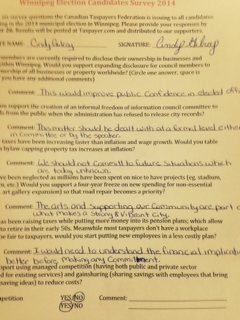 Winnipeg Election Candidates Survey 2014
survey questions the Canadian Taxpayers Federation is issuing to all candidates
in the 2014 municipal election in Winnipeg. Please provide your responses by
Results will be posted at Taxpayer.com and distributed to our supporters.
NAME: Cindy Gilroy SIGNATURE: Cindy Gilroy
members are currently required to disclose their ownership in businesses and
within Winnipeg. Would you support expanding disclosure for council members to
ownership of all businesses or property worldwide? (Circle one answer, space is
you have any additional comments)
Comment: This would improve public confidence in elected
you support the creation of an informal freedom of information council committee to
from the public when the administration has refused to release city records?
Comment: This matter should be dealt with at a formal level either
in Committee or by the speaker.
taxes have been increasing faster than inflation and wage growth. Would you table
bylaw capping property tax increases at inflation?
Comment: We should not commit to future situations which
are today unknown.
been neglected as millions have been spent on nice to have projects (eg. stadium,
etc.) Would you support a four year freeze on new spending for non-essential
art gallery expansion) so that road repair becomes a priority?
Comment: The arts and supporting our Community are part
what makes a Strong & Vibrant City.
has been raising taxes while putting more money into its pension plans; which allow
to retire in their early 50s. Meanwhile most taxpayers don't have a workplace
be fair to taxpayers, would you start putting new employees in a less costly plan?
Comment: I would need to understand the financial
better before making any Commitment.
support using managed competition (having both public and private sector
for existing services) and gainsharing (sharing savings with employees that bring
ideas) to reduce costs?
YES/NO Comment:
YES/NO